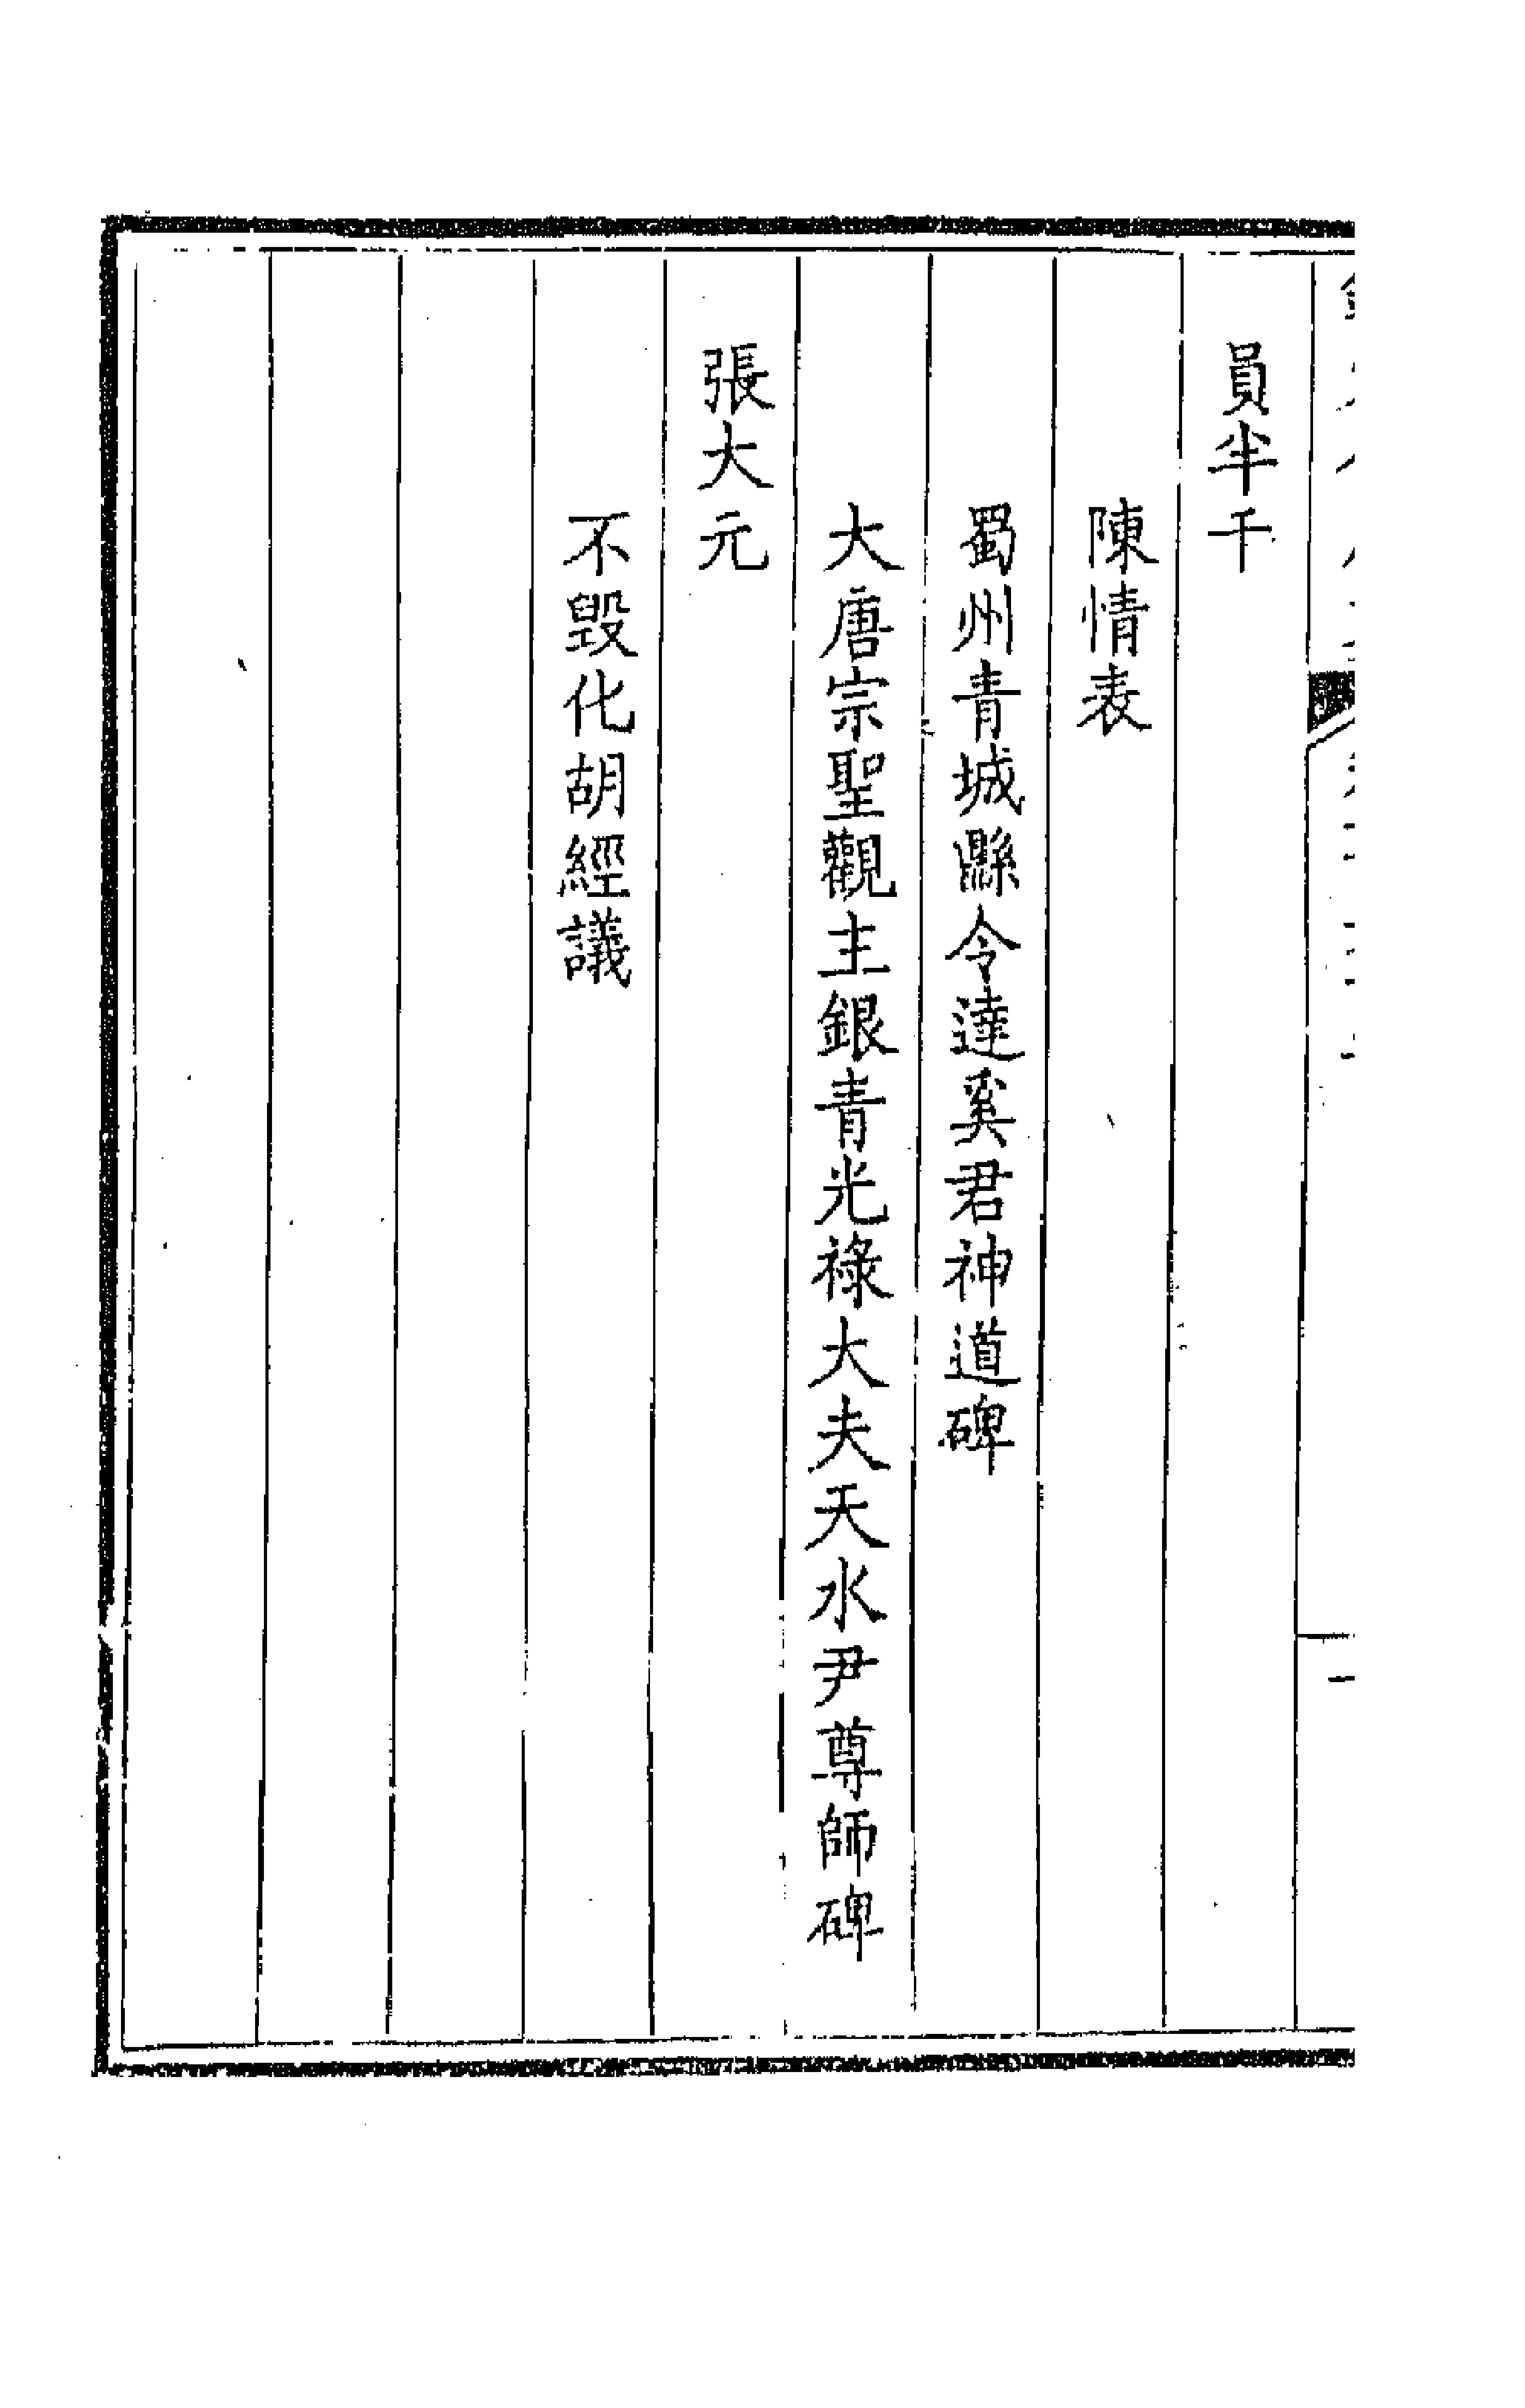 員半千
陳情表
蜀州青城縣令達奚君神道碑
大唐宗聖觀主銀青光祿大夫天水尹尊師碑
張大元
不毁化胡經議